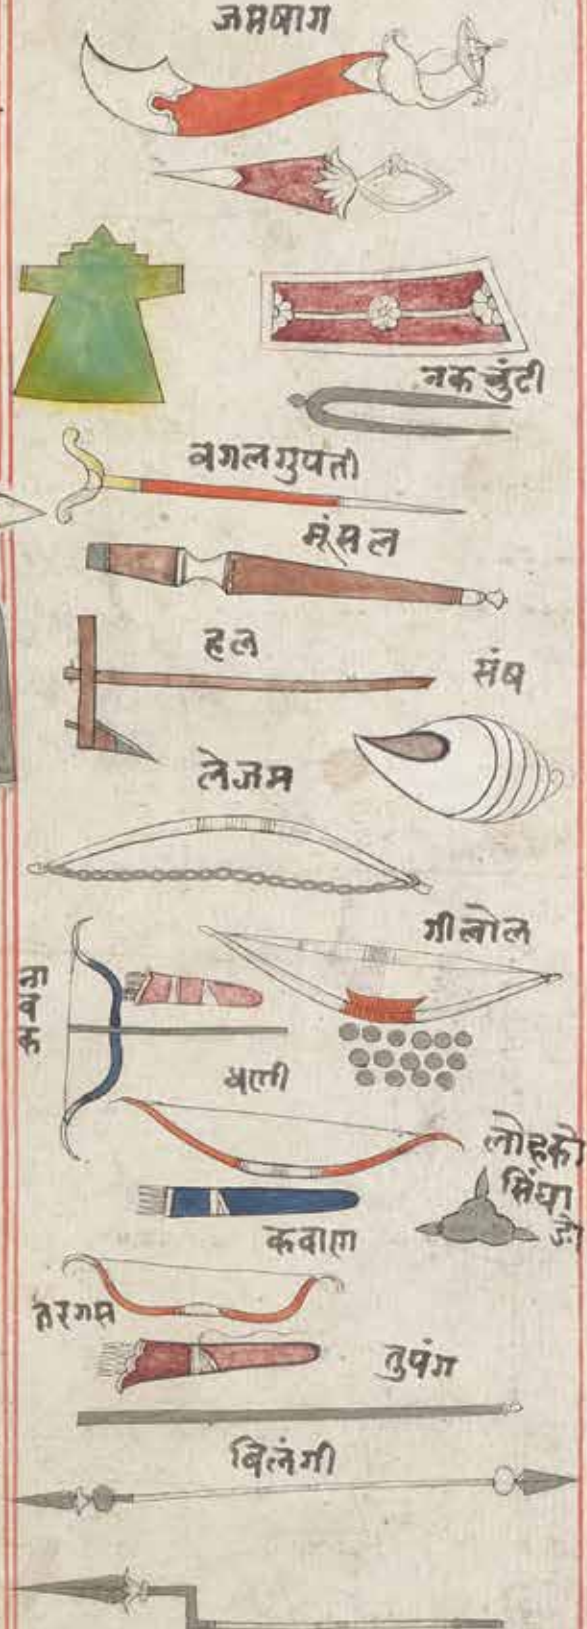 जमषाग
नकचुंटी
वगलगुपती
मूंसल
हल
संष
लेजम
गीलोल
नावक
धत्ती
लोहको
सिंघा
डो
कबाण
तरगस
तुपंग
बिलंगी